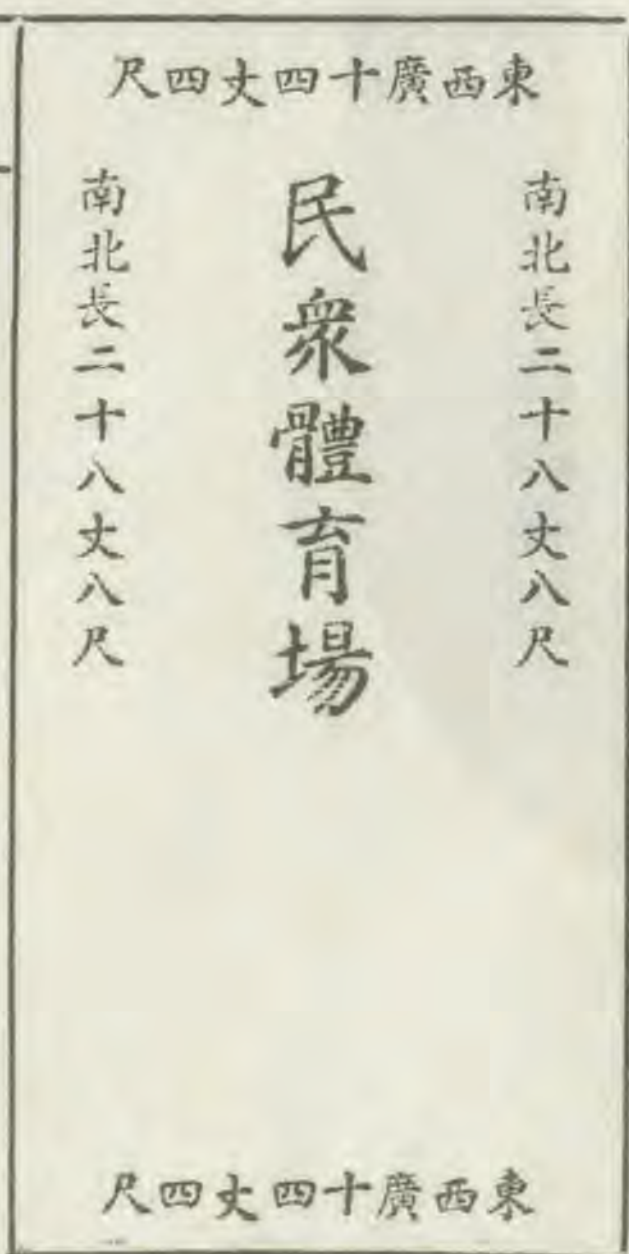 東西廣十四丈四尺
南北長二十八丈八尺
民眾體育場
南北長二十八丈八尺
東西廣十四丈四尺